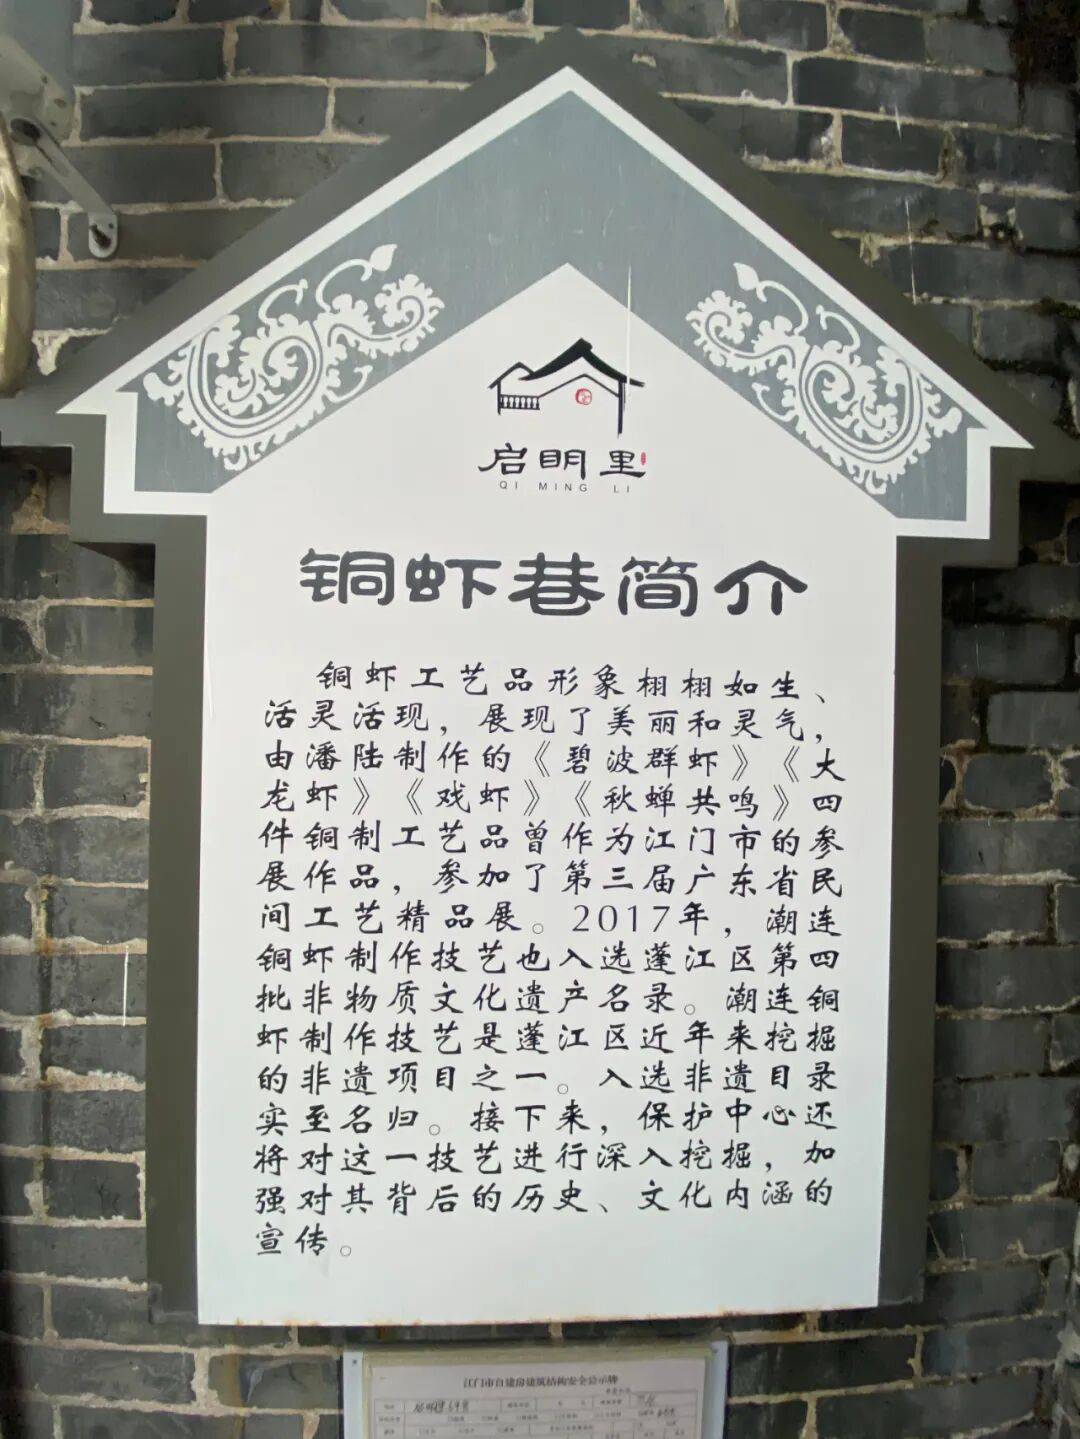 启明里
QI MING LI
铜虾巷简介
铜虾工艺品形象栩栩如生、
活灵活现，展现了美丽和灵气，
由潘陆制作的《碧波群虾》《大
龙虾》《戏虾》《秋蝉共鸣》四
件铜制工艺品曾作为江门市的参
展作品，参加了第三届广东省民
间工艺精品展。2017年，潮连
铜虾制作技艺也入选蓬江区第四
批非物质文化遗产名录。潮连铜
虾制作技艺是蓬江区近年来挖掘
的非遗项目之一。入选非遗目录
实至名归。接下来，保护中心还
将对这一技艺进行深入挖掘，加
强对其背后的历史、文化内涵的
宣传。
江门市自建房建筑结构安全公示牌